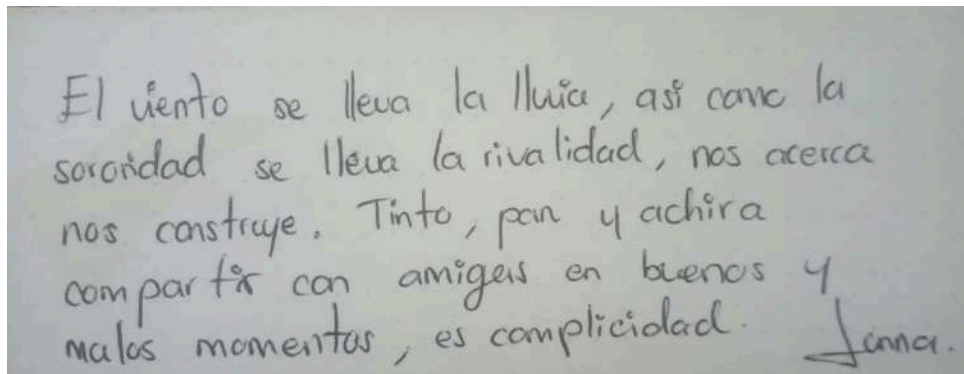 El viento se lleva la lluvia, así como la
sororidad se lleva la rivalidad, nos acerca
nos construye. Tinto, pan y achira
compartir con amigas en buenos y
malos momentos, es complicidad. Janna.